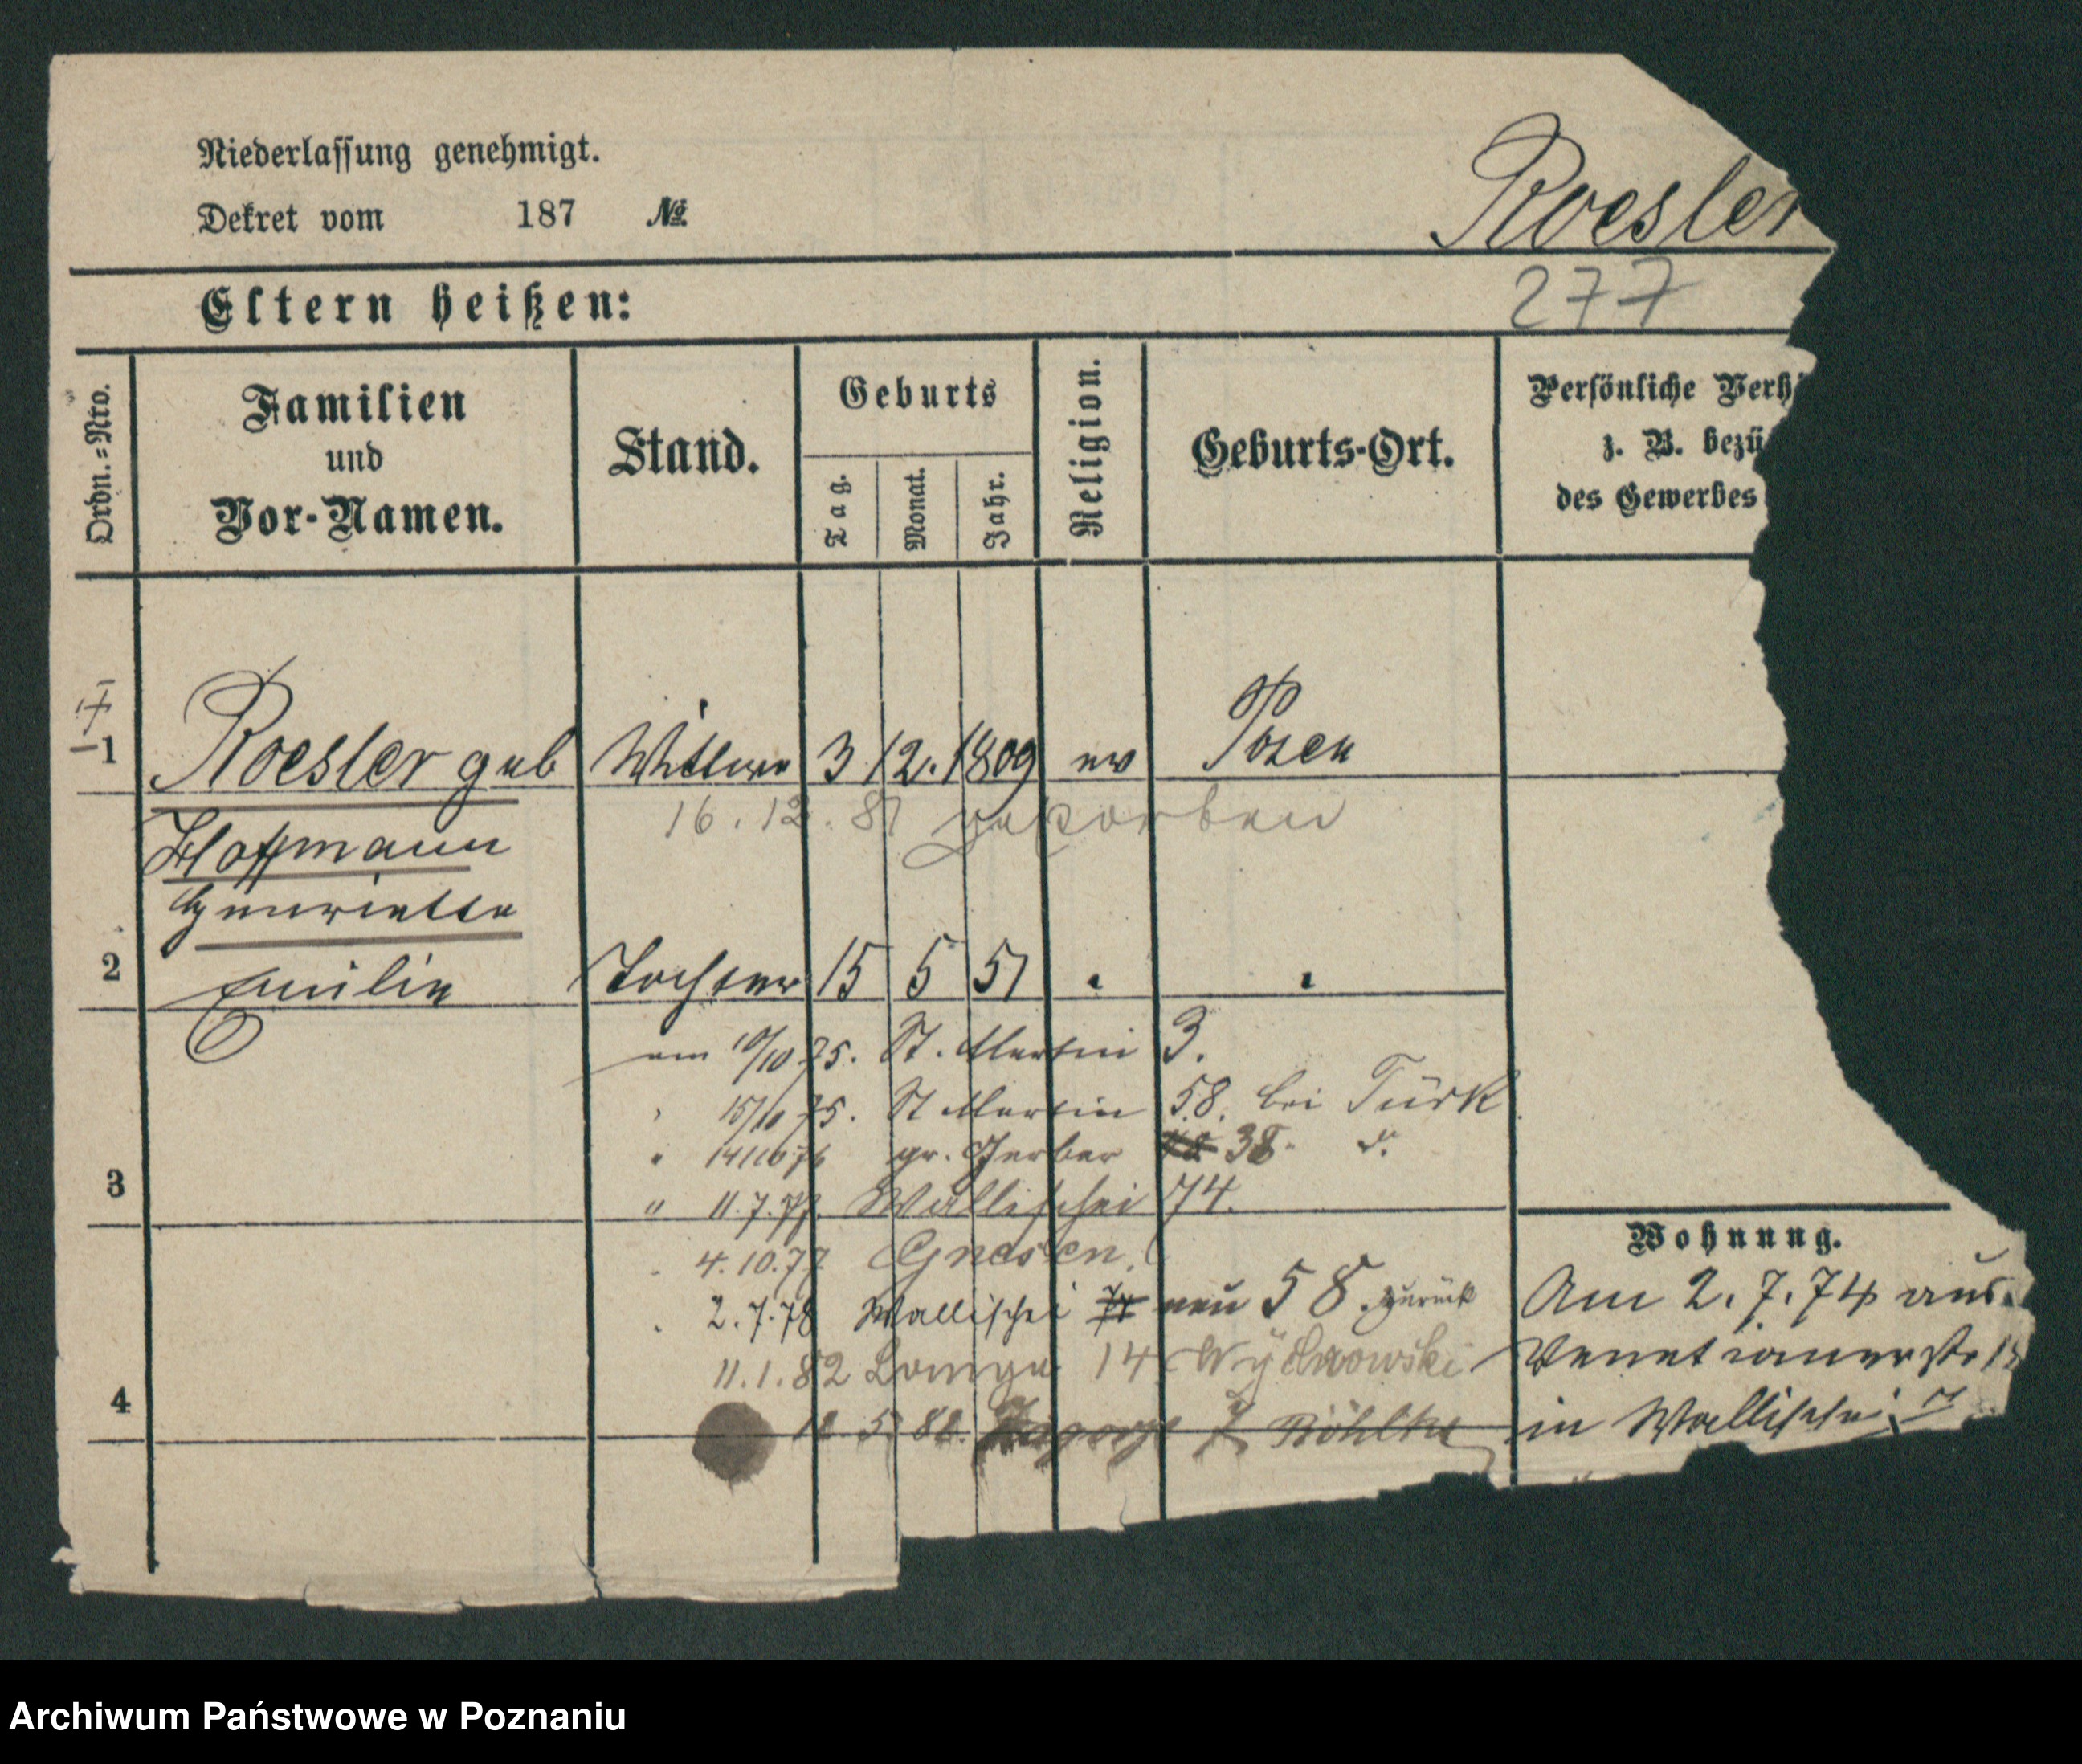 Niederlassung genehmigt.
Dekret vom 187 №
Roesler
277
Eltern heißen:
Ordn.=Nro.
Familien
und
Vor-Namen.
Stand.
Geburts
Tag.
Monat.
Jahr.
Religion.
Geburts-Ort.
Persönliche Verh
z. B. bezü
des Gewerbes
1 Roesler geb Wittwe 3 12. 1809 ev Posen
16. 12. 81 gestorben
Hoffmann
Henriette
2 Emilie Tochter 15 5 51 " "
am 10/10 75. St. Martin 3.
" 15/10 75. St Martin 58. bei Türk
" gr. Gerber 38. do.
3
" 11. 7. 77. Wallischei 74.
" 4. 10. 77 Gnesen.
" 2. 7. 78 Wallischei 74 neu 58. zurück
11. 1. 82 14
4
5 82. Zagorze 7 Böhlke
Wohnung.
Am 2. 7. 74 aus
Venetianerstr
in Wallischei
Archiwum Państwowe w Poznaniu